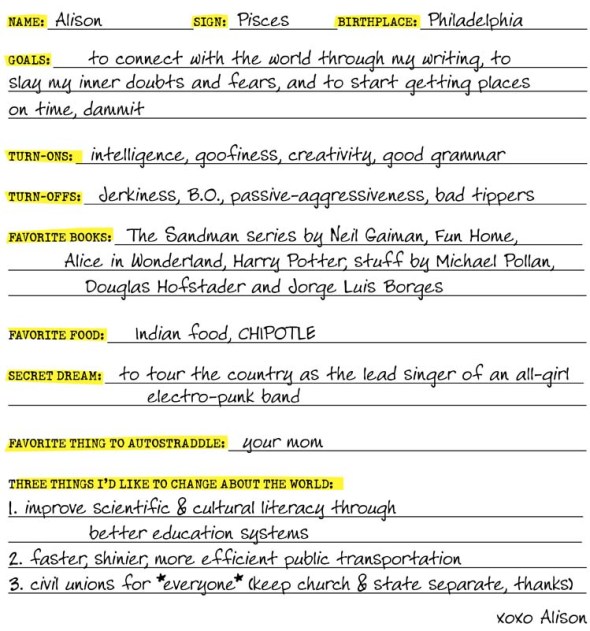 NAME: Alison SIGN: Pisces BIRTHPLACE: Philadelphia
GOALS: to connect with the world through my writing, to
slay my inner doubts and fears, and to start getting places
on time, dammit
TURN-ONS: intelligence, goofiness, creativity, good grammar
TURN-OFFS: Jerkiness, B.O., passive-aggressiveness, bad tippers
FAVORITE BOOKS: The Sandman series by Neil Gaiman, Fun Home,
Alice in Wonderland, Harry Potter, stuff by Michael Pollan,
Douglas Hofstader and Jorge Luis Borges
FAVORITE FOOD: Indian food, CHIPOTLE
SECRET DREAM: to tour the country as the lead singer of an all-girl
electro-punk band
FAVORITE THING TO AUTOSTRADDLE: your mom
THREE THINGS I'D LIKE TO CHANGE ABOUT THE WORLD:
1. improve scientific & cultural literacy through
better education systems
2. faster, shinier, more efficient public transportation
3. civil unions for *everyone* (keep church & state separate, thanks)
xoxo Alison